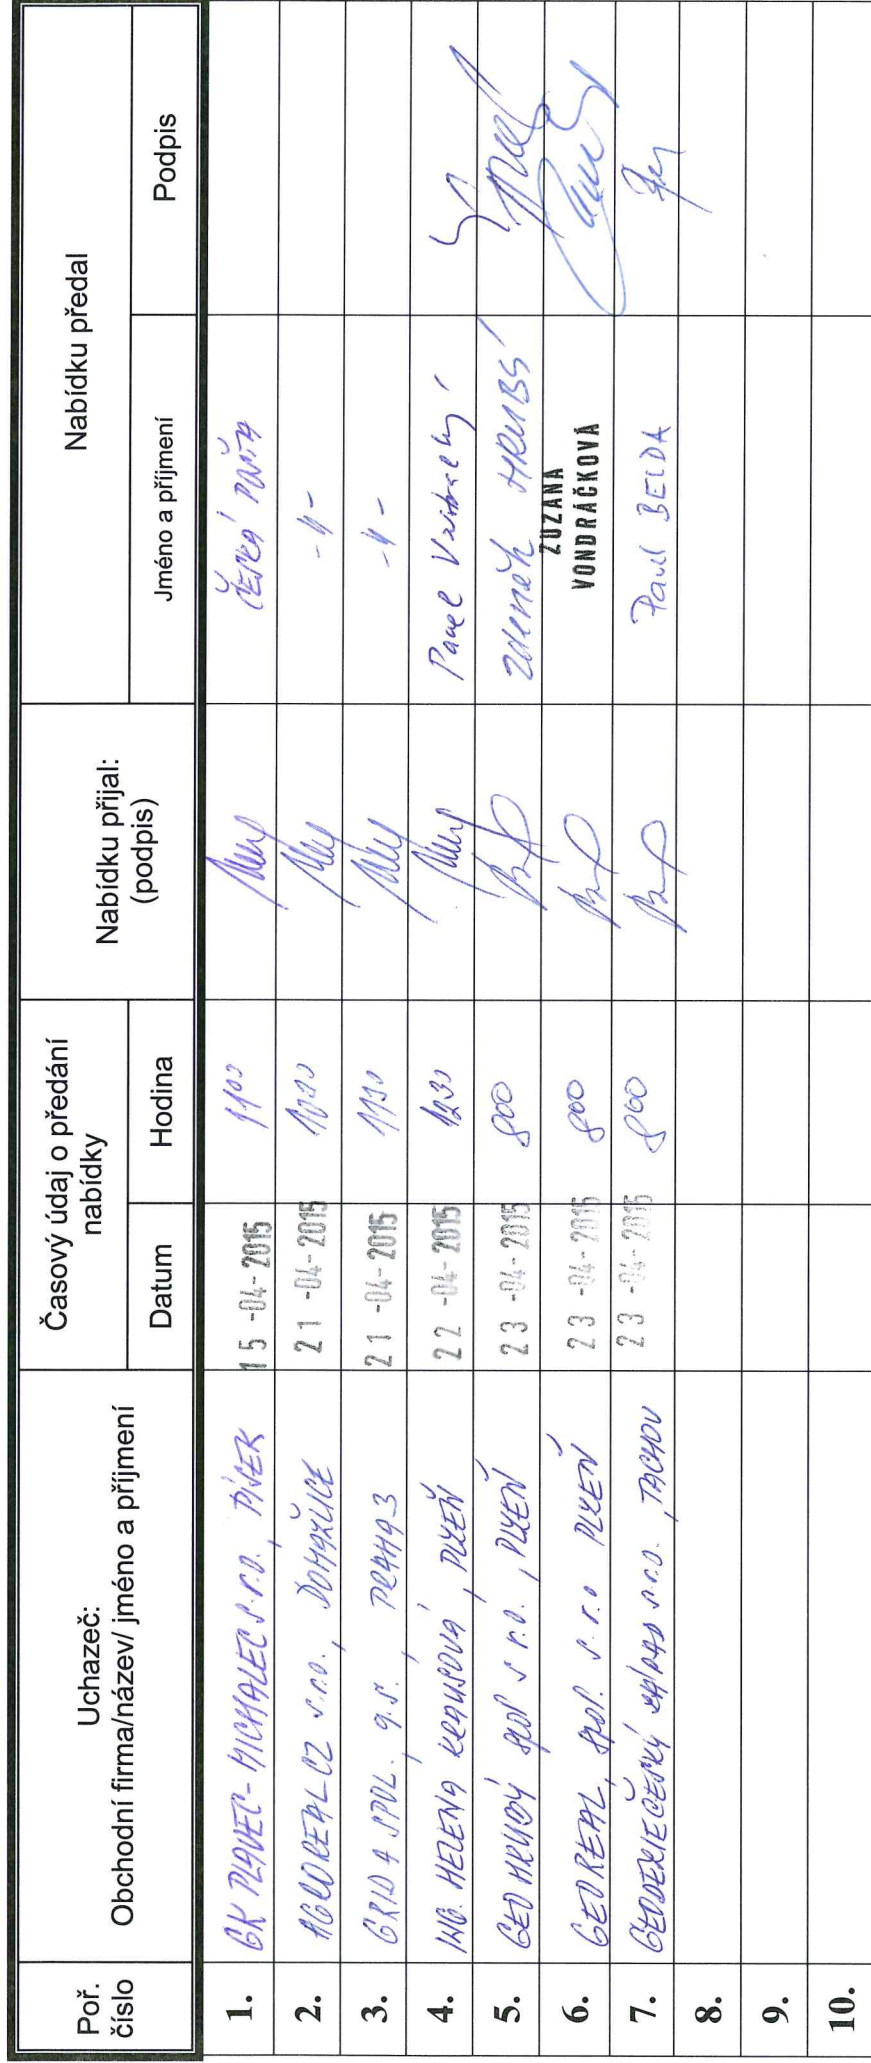 Poř. číslo | Uchazeč: Obchodní firma/název/ jméno a příjmení | Časový údaj o předání nabídky | Nabídku přijal: (podpis) | Nabídku předal
Datum | Hodina | Jméno a příjmení | Podpis
1. | GK PLAVEC-MICHALEC s.r.o. PÍSEK | 15 -04- 2015 | 1100 | ČESKÁ POŠTA
2. | AGROREAL CZ s.r.o., DOMAŽLICE | 21 -04- 2015 | -"-
3. | GRID A SPOL. a.s., PRAHA 3 | 21 -04- 2015 | 1130 | -"-
4. | ING. HELENA KRAUSOVÁ, PLZEŇ | 22 -04- 2015 | 1230 | Pavel
5. | GEO HRUBÝ spol s r.o., PLZEŇ | 23 -04- 2015 | 800 | Zdeněk HRUBÝ
6. | GEOREAL, spol. s.r.o PLZEŇ | 23 -04- 2015 | 800 | ZUZANA VONDRÁČKOVÁ
7. | GEODEZIE ČESKÝ ZÁPAD s.r.o., TACHOV | 23 -04- 2015 | 800 | Pavel BELDA
8.
9.
10.